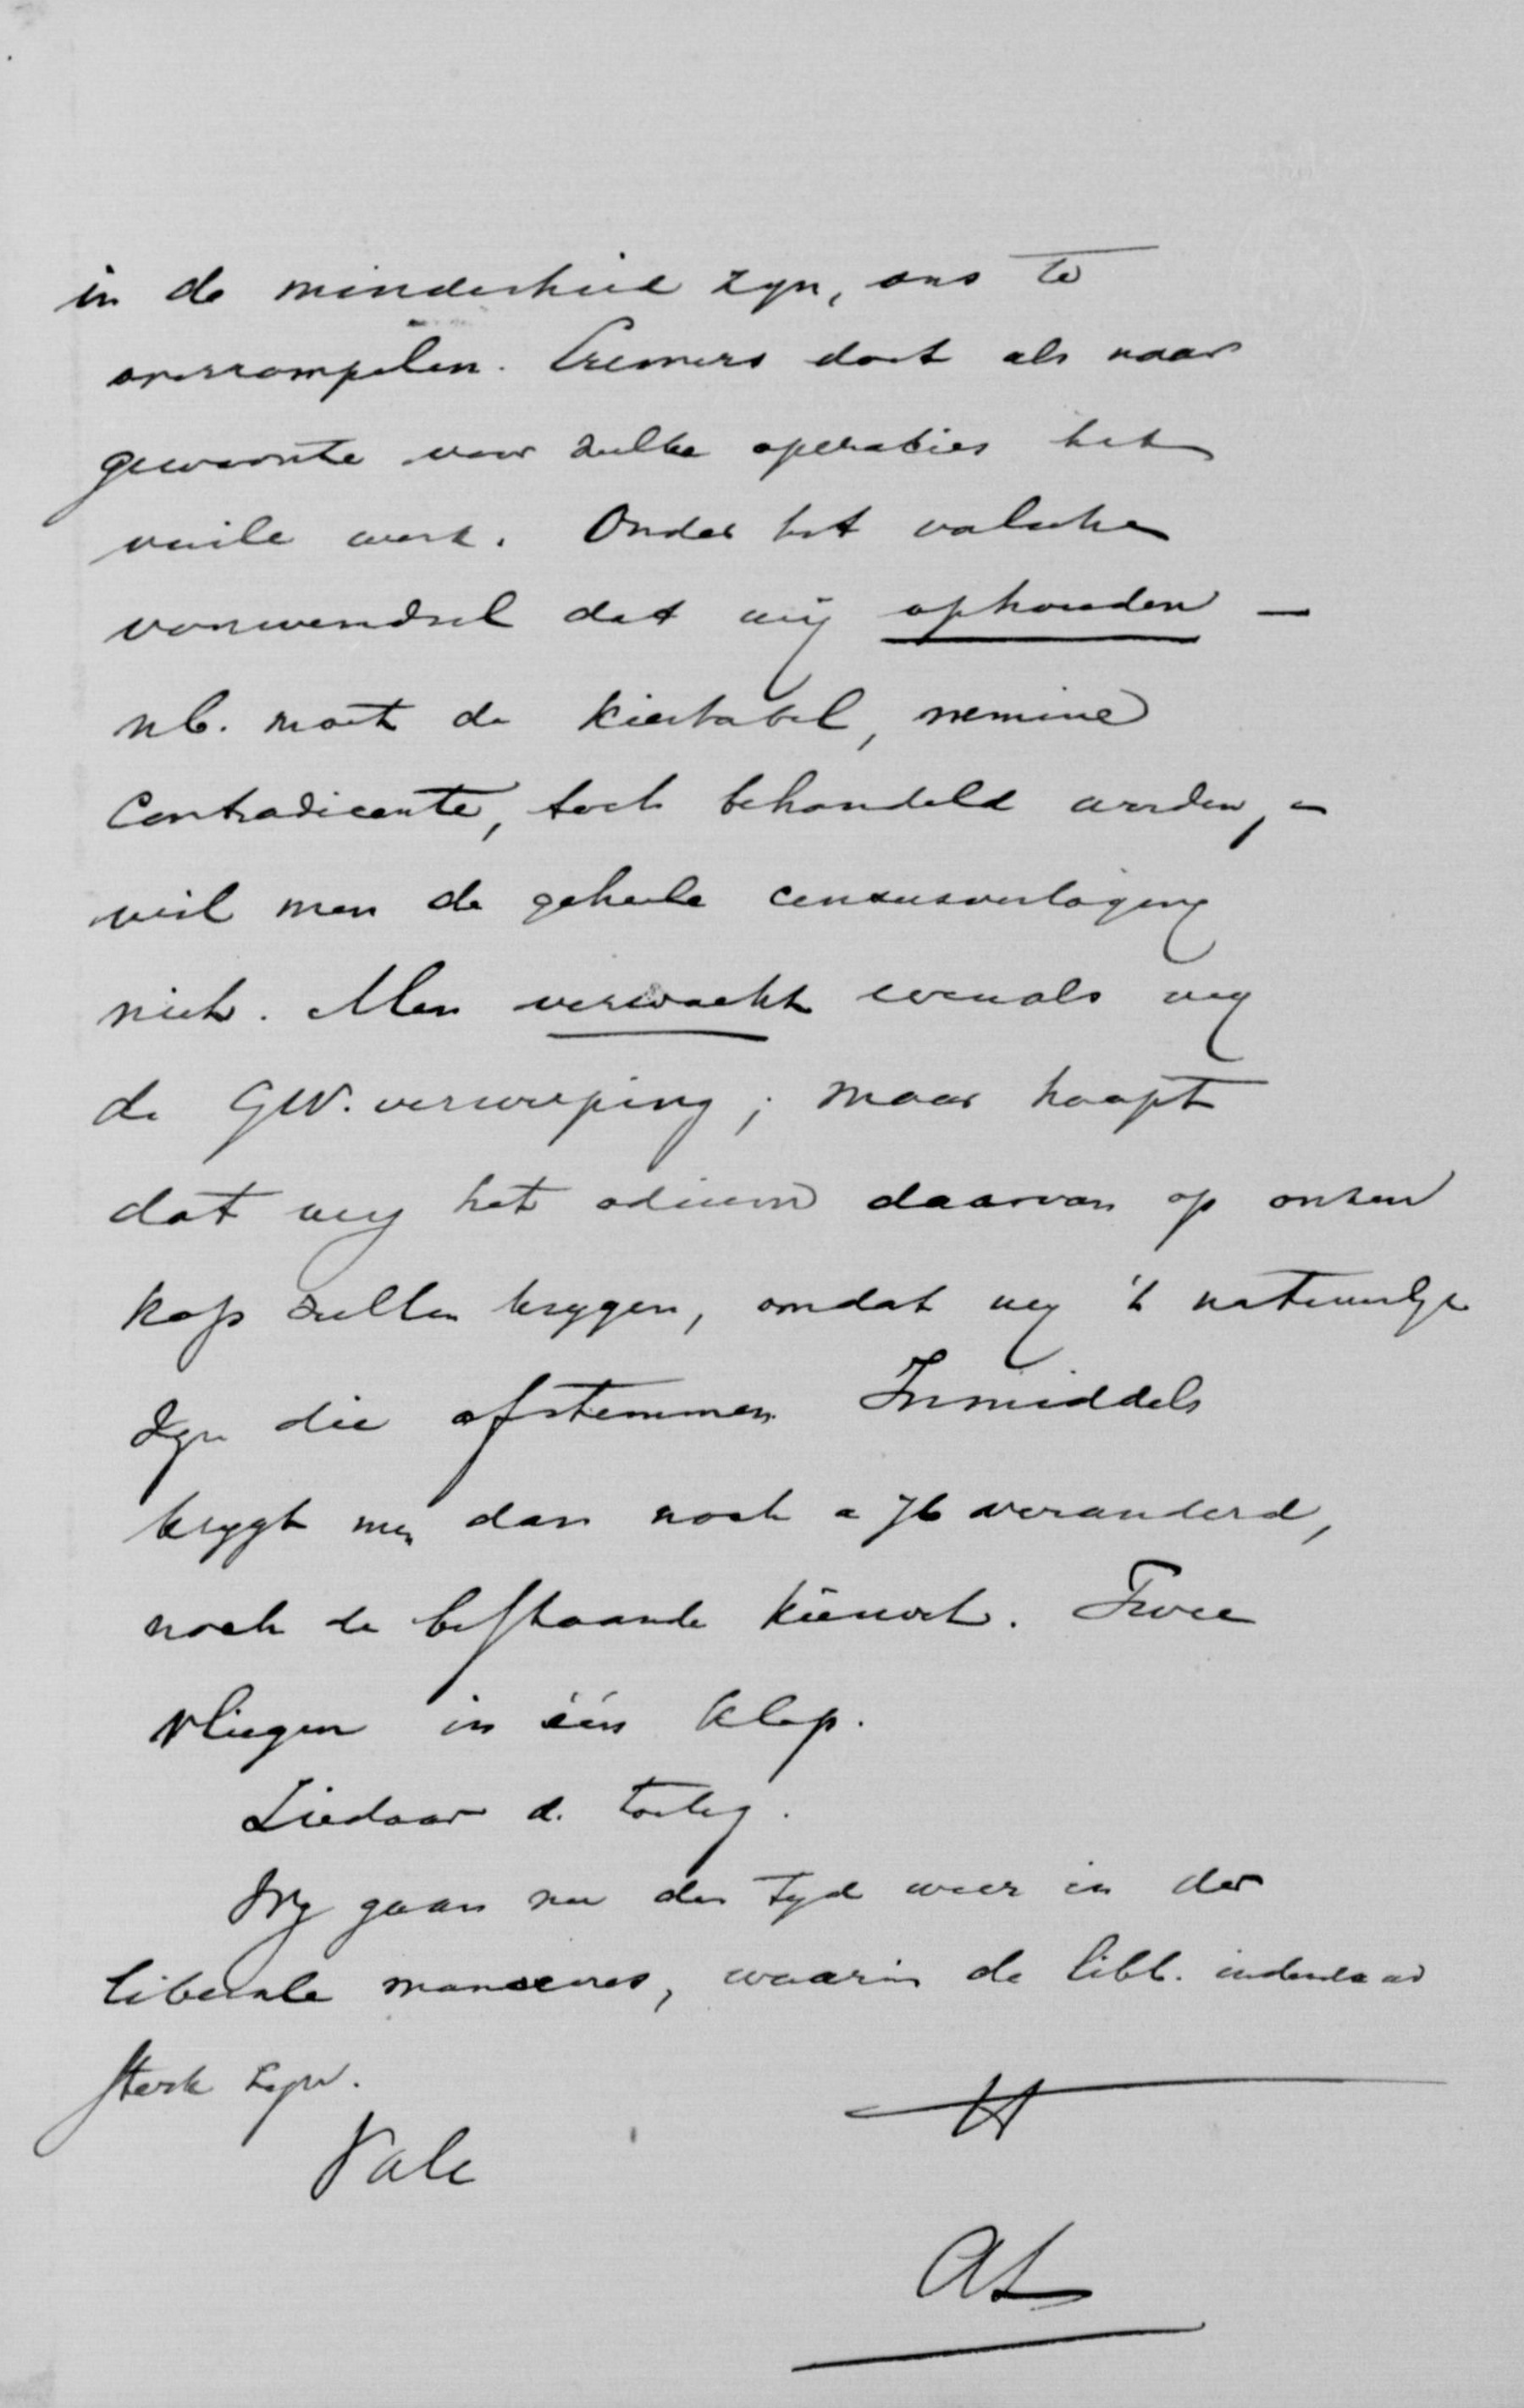 in de minderheid zyn, ons te
overrompelen. Cremers doet als naar
gewoonte voor zulke operaties het
vuile werk. Onder het valsche
voorwendsel dat wij ophouden —
nb. moet de kiestabel, nemine
Contradicente, toch behandeld worden, –
wil men de geheele censusverlaging
niet. Men verwacht evenals wy
de GW. verwerping; maar hoopt
dat wy het odium daarvan op onzen
kop zullen krygen, omdat wy 't natuurlyk
zyn die afstemmen. Inmiddels
krygt men dan noch a 76 veranderd,
noch de bestaande kieswet. Twee
vliegen in één klap.
Ziedaar d. toeleg.
Wy gaan nu den tyd weer in der
liberale manoeuvres, waarin de libb. inderdaad
sterk zyn.
Vale
tt
AL